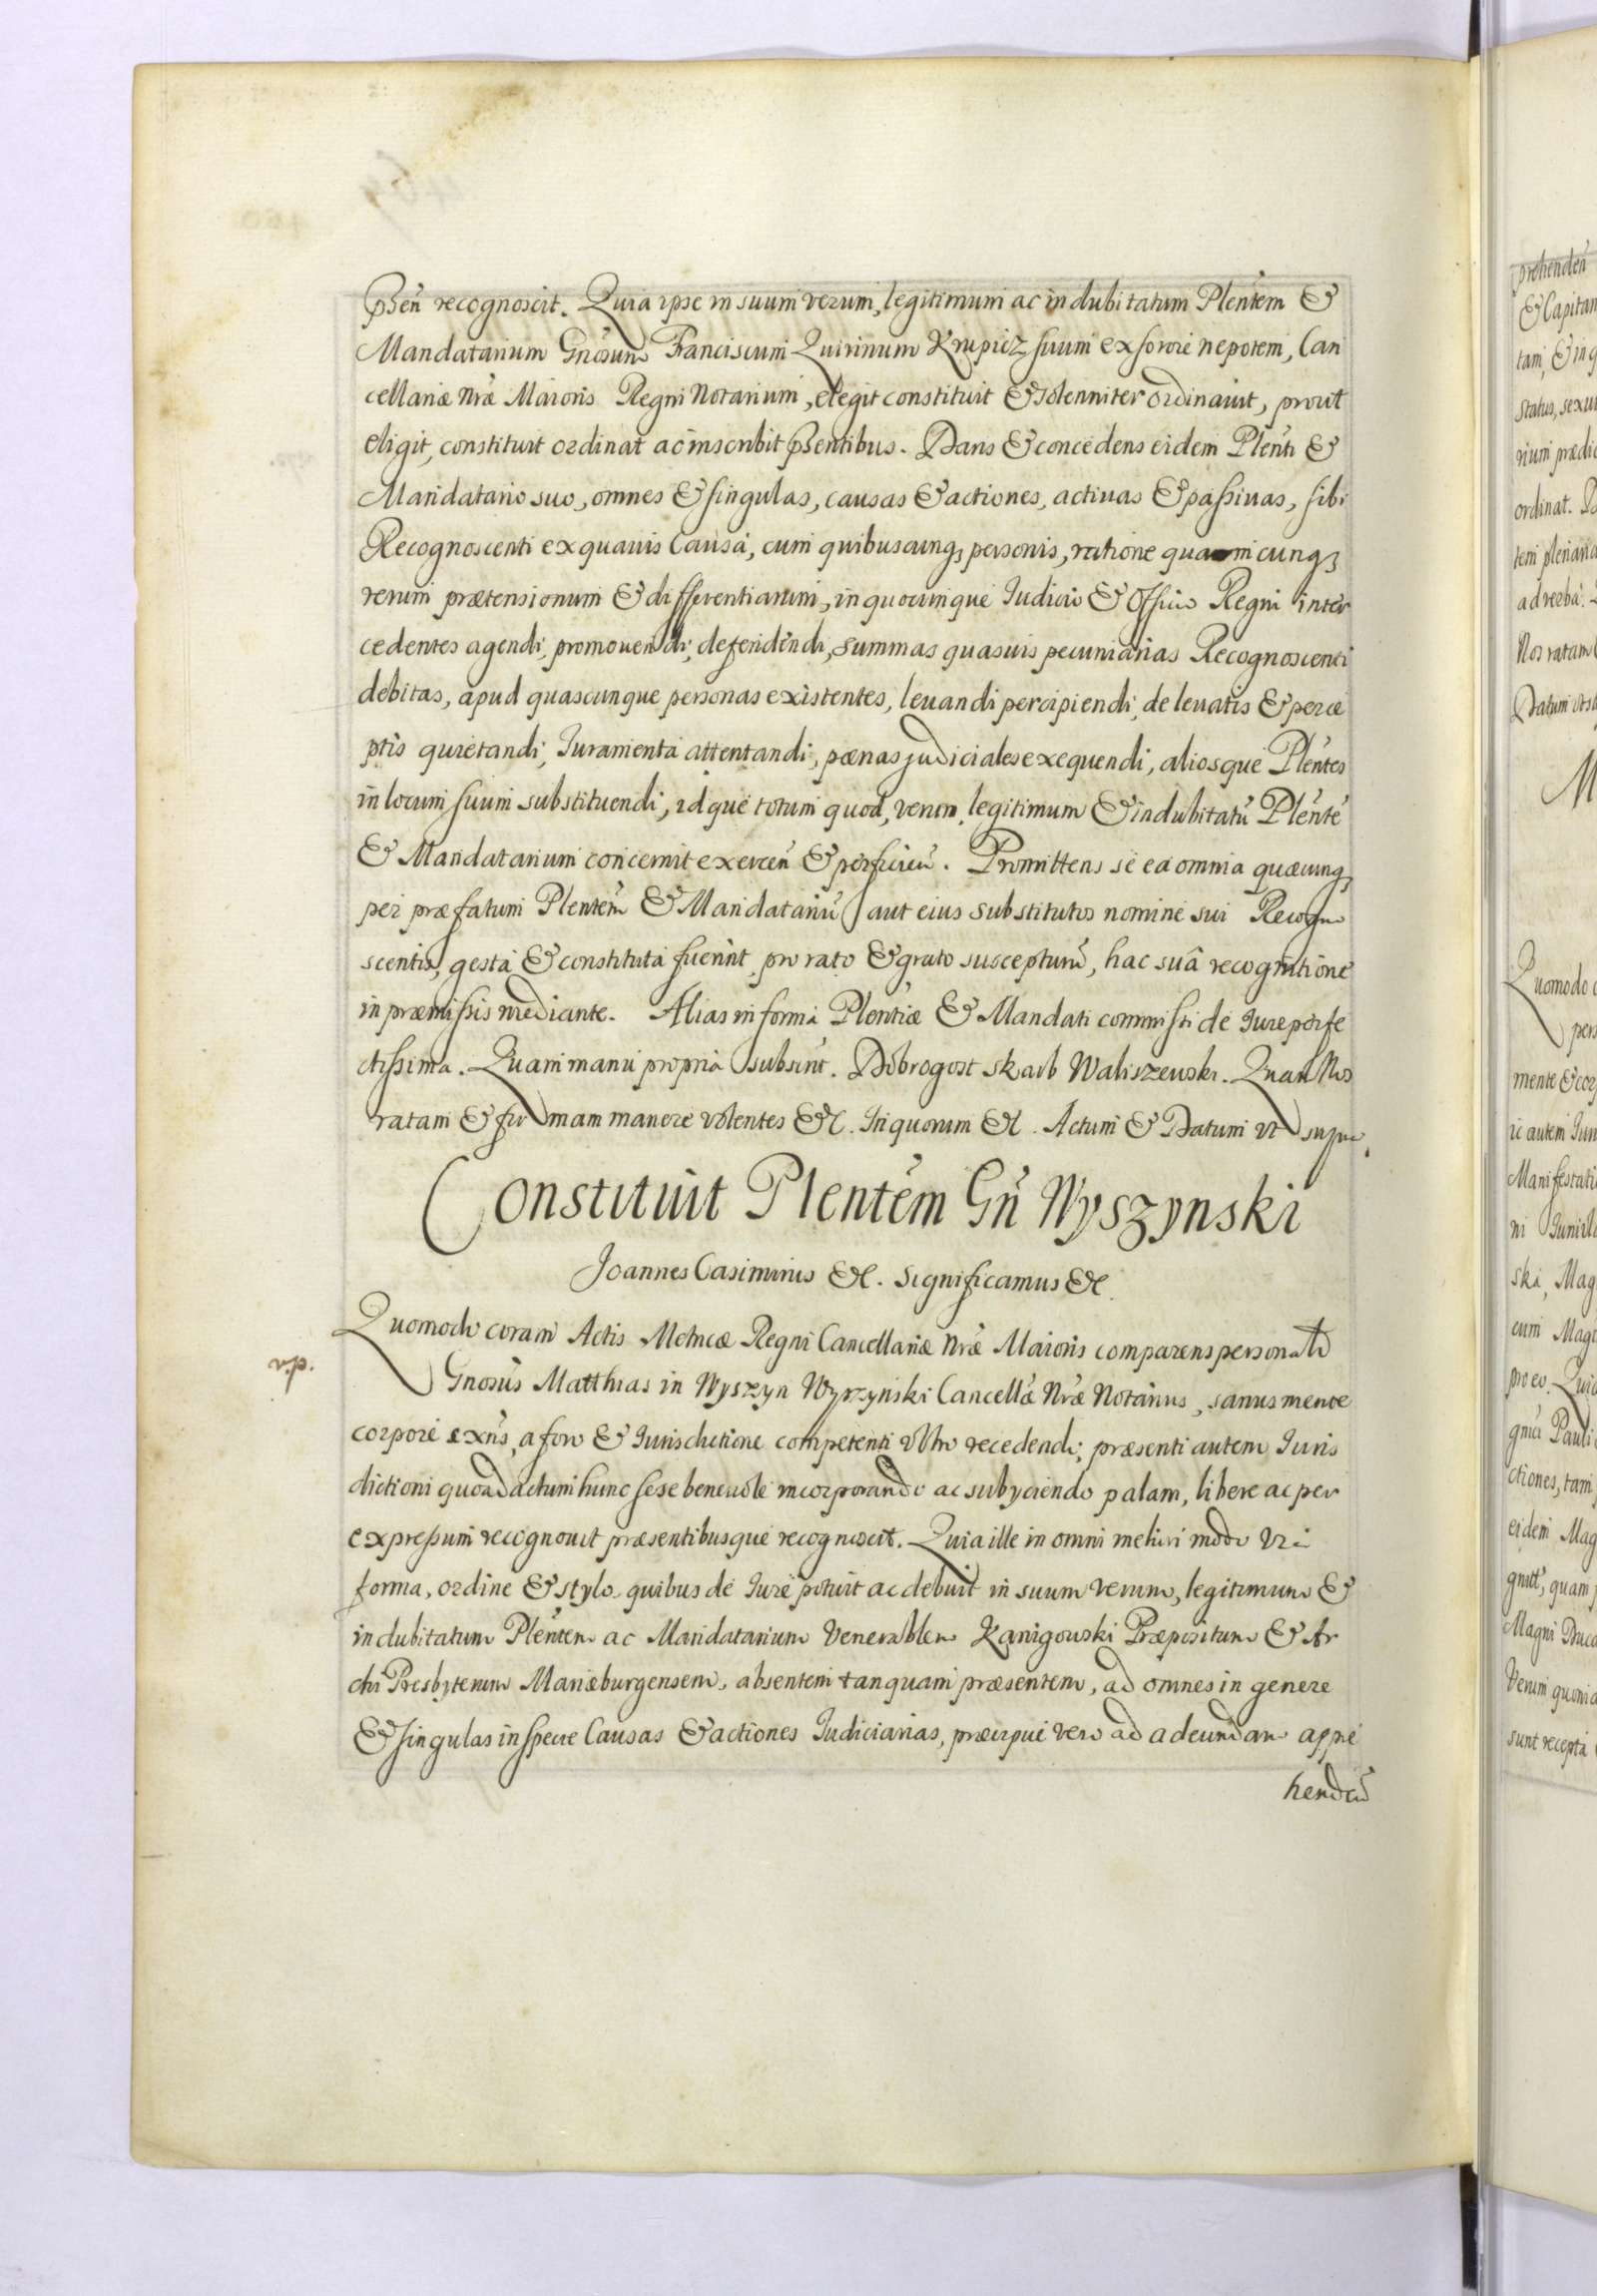 Psen recognoscit. Quia ipse in suum verum, legitimum ac indubitatum Plentem &
Mandatarium Gnosum Franciscum Quirinum Krupicz suum ex sorore nepotem, Can
cellariæ Nræ Maioris Regni Notarium, elegit constituit & solenniter ordinauit, prout
eligit, constituit ordinat ac inscribit Psentibus. Dans & concedens eidem Plenti &
Mandatario suo, omnes & singulas, causas & actiones, actiuas & passiuas, sibi
Recognoscenti ex quauis Causa, cum quibuscunq personis, ratione quarumcunq
rerum prætensionum & differentiarum, in quocumque Iudicio & Officio Regni inter
cedentes agendi, promouendi, defendendi, summas quasuis pecuniarias Recognoscenti
debitas, apud quascunque personas existentes, leuandi percipiendi, de leuatis & perce
ptis quietandi, Iuramenta attentandi, pœnas judiciales exequendi, aliosque Plentes
in locum suum substituendi, idque totum quod, verum legitimum & indubitatu Plente
& Mandatarium concernit exercen & perficien. Promittens se ea omnia quæcunq
per præfatum Plentem & Mandatariu aut eius substitutos nomine sui Recogno
scentis, gesta & constituta fuerint, pro rato & grato suscepturu, hac suâ recognitione
in præmissis mediante. Alias in forma Plentiæ & Mandati commissi de Iure perfe
ctissima. Quam manu propria subscrit. Dobrogost Skarb Waliszewski. Quam Nos
ratam & firmam manere volentes &c. In quorum &c. Actum & Datum vt supra.
Constituit Plentem Gn Wyszynski
Joannes Casimirus &c. Significamus &c.
Quomodo coram Actis Metricæ Regni Cancellariæ Nræ Maioris comparens personaliter
v.p.
Gnosus Matthias in Wyszyn Wyszynski Cancellæ Nræ Notarius, sanus mente
corpore exns, a foro & Iurisdictione competenti vltro recedendo; præsenti autem Iuris
dictioni quoad actum hunc sese beneuole incorporando ac subyciendo palam, libere ac per
expressum recognouit præsentibusque recognoscit. Quia ille in omni meliori modo via
forma, ordine & stylo quibus de Iure potuit ac debuit in suum verum, legitimum &
indubitatum Plentem ac Mandatarium Venerablem Kanigowski Præpositum & Ar
chi Presbyterum Mariæburgensem, absentem tanquam præsentem, ad omnes in genere
& singulas in specie Causas & actiones Iudiciarias, præcipue vero ad adeundam appre
henden
prehenden
& Capitan
tam, & in q
status, sexu
rium prædic
ordinat. D
tem plenaria
ad verba.
Nos ratam
Datum
M
Quomodo c
pers
mente & corp
ic autem Iun
Manifestati
ni
ski, Mag
cum Mag
pro eo. Quia
gnici Pauli
ctiones, tam
eidem Mag
gnitt, quam
Magni Duca
Verum quonia
sunt recepta